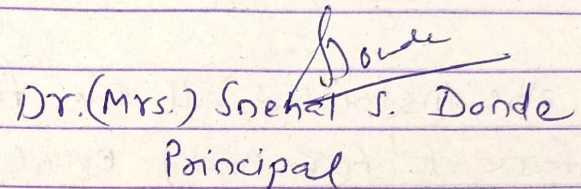 Donde
Dr. (Mrs.) Snehal S. Donde
Principal